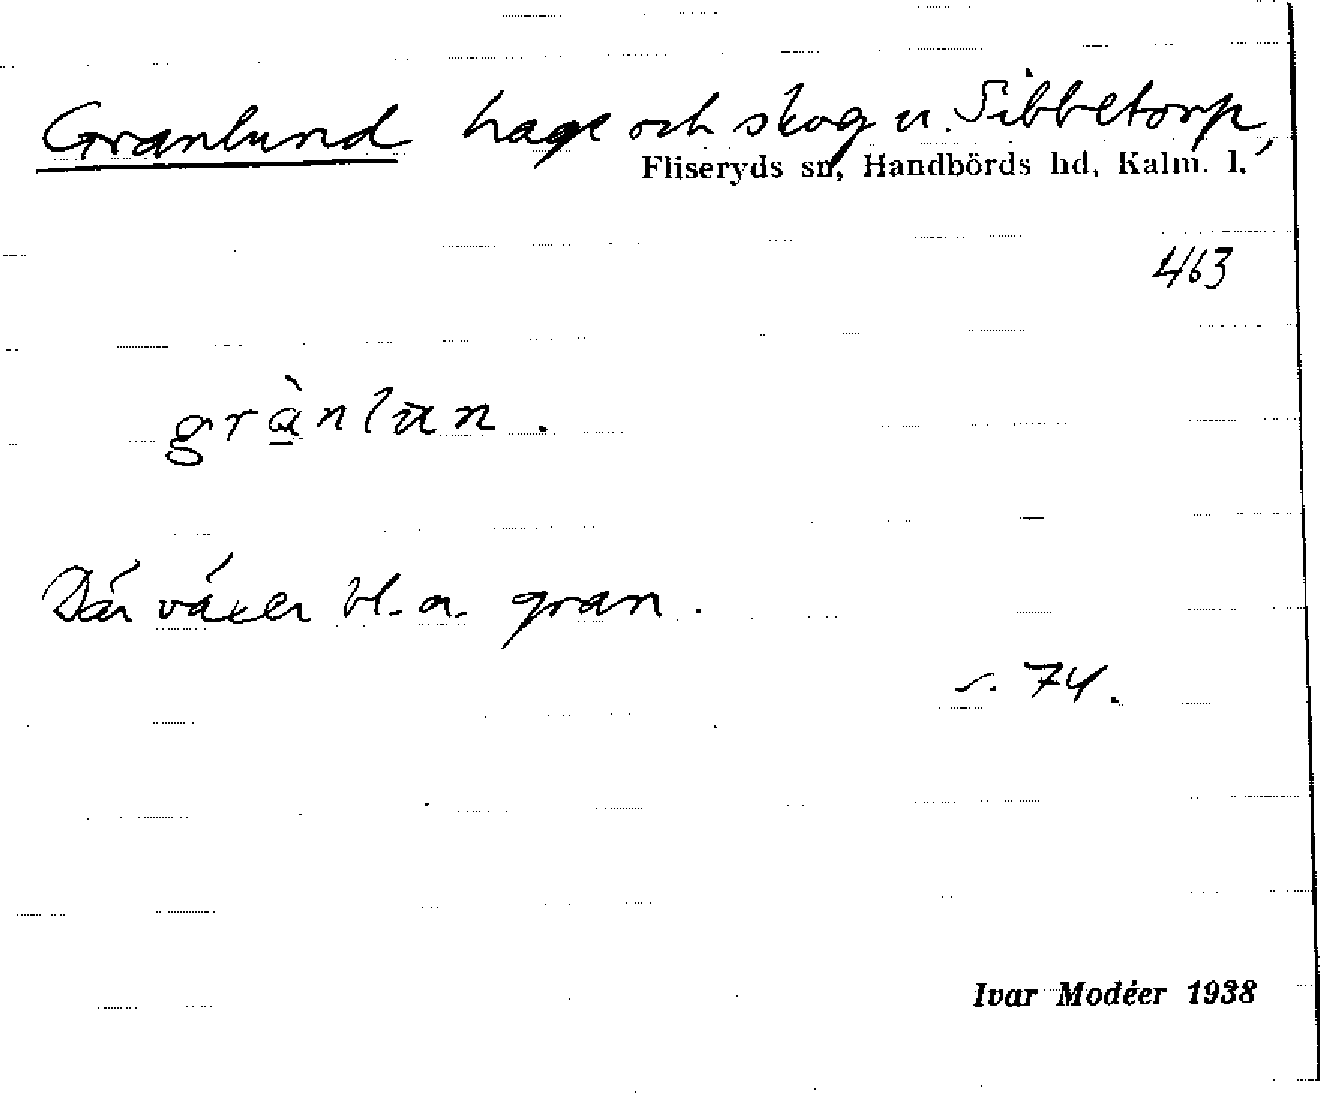 Granlund hage och skog u. Sibbetorp,
Fliseryds sn, Handbörds hd, Kalm. l.
463
grànlun.
Där växer bl. a. gran.
s. 74.
Ivar Modéer 1938